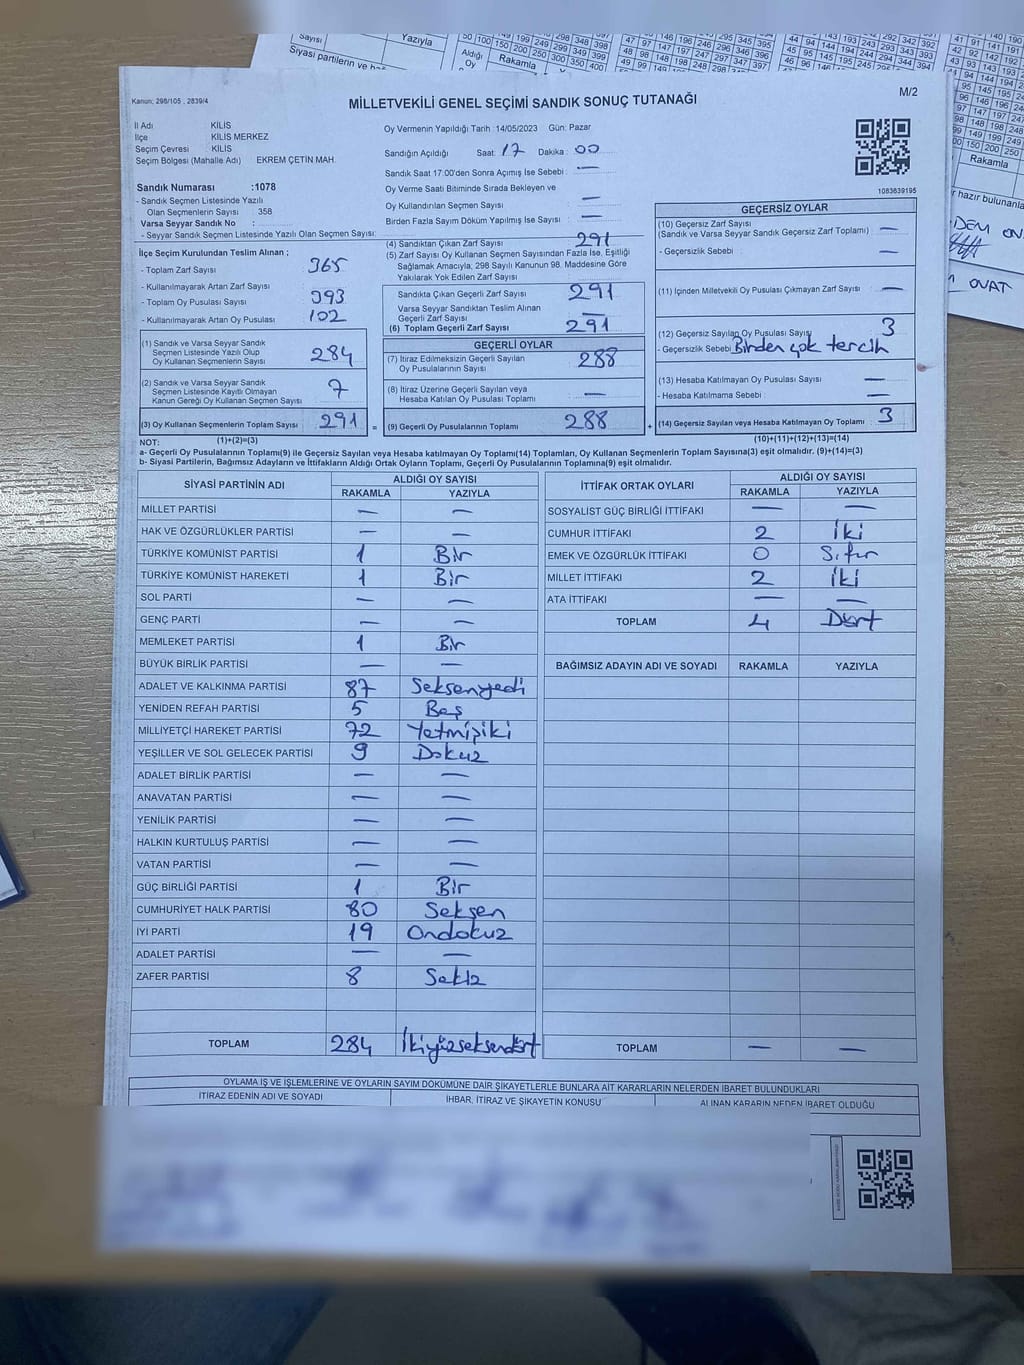 Kanun: 298/105 , 2839/4
M/2
MİLLETVEKİLİ GENEL SEÇİMİ SANDIK SONUÇ TUTANAĞI
İl Adı KİLİS
İlçe KİLİS MERKEZ
Seçim Çevresi KİLİS
Seçim Bölgesi (Mahalle Adı) EKREM ÇETİN MAH.
Sandık Numarası :1078
- Sandık Seçmen Listesinde Yazılı
Olan Seçmenlerin Sayısı : 358
Varsa Seyyar Sandık No :
- Seyyar Sandık Seçmen Listesinde Yazılı Olan Seçmen Sayısı:
Oy Vermenin Yapıldığı Tarih :14/05/2023 Gün: Pazar
Sandığın Açıldığı Saat: 17 Dakika : 00
Sandık Saat 17:00'den Sonra Açılmış İse Sebebi : —
Oy Verme Saati Bitiminde Sırada Bekleyen ve
Oy Kullandırılan Seçmen Sayısı —
Birden Fazla Sayım Döküm Yapılmış İse Sayısı —
1083839195
İlçe Seçim Kurulundan Teslim Alınan ;
- Toplam Zarf Sayısı 365
- Kullanılmayarak Artan Zarf Sayısı
- Toplam Oy Pusulası Sayısı 393
- Kullanılmayarak Artan Oy Pusulası 102
(1) Sandık ve Varsa Seyyar Sandık
Seçmen Listesinde Yazılı Olup
Oy Kullanan Seçmenlerin Sayısı 284
(2) Sandık ve Varsa Seyyar Sandık
Seçmen Listesinde Kayıtlı Olmayan
Kanun Gereği Oy Kullanan Seçmen Sayısı 7
(3) Oy Kullanan Seçmenlerin Toplam Sayısı 291
(4) Sandıktan Çıkan Zarf Sayısı 291
(5) Zarf Sayısı Oy Kullanan Seçmen Sayısından Fazla İse, Eşitliği
Sağlamak Amacıyla, 298 Sayılı Kanunun 98. Maddesine Göre
Yakılarak Yok Edilen Zarf Sayısı
Sandıkta Çıkan Geçerli Zarf Sayısı 291
Varsa Seyyar Sandıktan Teslim Alınan
Geçerli Zarf Sayısı —
(6) Toplam Geçerli Zarf Sayısı 291
GEÇERLİ OYLAR
(7) İtiraz Edilmeksizin Geçerli Sayılan
Oy Pusulalarının Sayısı 288
(8) İtiraz Üzerine Geçerli Sayılan veya
Hesaba Katılan Oy Pusulası Toplamı —
= (9) Geçerli Oy Pusulalarının Toplamı 288
GEÇERSİZ OYLAR
(10) Geçersiz Zarf Sayısı
(Sandık ve Varsa Seyyar Sandık Geçersiz Zarf Toplamı) —
- Geçersizlik Sebebi : —
(11) İçinden Milletvekili Oy Pusulası Çıkmayan Zarf Sayısı —
(12) Geçersiz Sayılan Oy Pusulası Sayısı 3
- Geçersizlik Sebebi Birden çok tercih
(13) Hesaba Katılmayan Oy Pusulası Sayısı —
- Hesaba Katılmama Sebebi : —
+ (14) Geçersiz Sayılan veya Hesaba Katılmayan Oy Toplamı 3
NOT: (1)+(2)=(3)
(10)+(11)+(12)+(13)=(14)
a- Geçerli Oy Pusulaları Toplamı(9) ile Geçersiz Sayılan veya Hesaba katılmayan Oy Toplamı(14) Toplamları, Oy Kullanan Seçmenlerin Toplam Sayısına(3) eşit olmalıdır. (9)+(14)=(3)
b- Siyasi Partilerin, Bağımsız Adayların ve İttifakların Aldığı Ortak Oyların Toplamı, Geçerli Oy Pusulalarının Toplamına(9) eşit olmalıdır.
SİYASİ PARTİNİN ADI ALDIĞI OY SAYISI
RAKAMLA YAZIYLA
MİLLET PARTİSİ — —
HAK VE ÖZGÜRLÜKLER PARTİSİ — —
TÜRKİYE KOMÜNİST PARTİSİ 1 Bir
TÜRKİYE KOMÜNİST HAREKETİ 1 Bir
SOL PARTİ — —
GENÇ PARTİ — —
MEMLEKET PARTİSİ 1 Bir
BÜYÜK BİRLİK PARTİSİ — —
ADALET VE KALKINMA PARTİSİ 87 Seksenyedi
YENİDEN REFAH PARTİSİ 5 Beş
MİLLİYETÇİ HAREKET PARTİSİ 72 Yetmişiki
YEŞİLLER VE SOL GELECEK PARTİSİ 9 Dokuz
ADALET BİRLİK PARTİSİ — —
ANAVATAN PARTİSİ — —
YENİLİK PARTİSİ — —
HALKIN KURTULUŞ PARTİSİ — —
VATAN PARTİSİ — —
GÜÇ BİRLİĞİ PARTİSİ 1 Bir
CUMHURİYET HALK PARTİSİ 80 Seksen
İYİ PARTİ 19 Ondokuz
ADALET PARTİSİ — —
ZAFER PARTİSİ 8 Sekiz
TOPLAM 284 İkiyüzseksendört
İTTİFAK ORTAK OYLARI ALDIĞI OY SAYISI
RAKAMLA YAZIYLA
SOSYALİST GÜÇ BİRLİĞİ İTTİFAKI — —
CUMHUR İTTİFAKI 2 İki
EMEK VE ÖZGÜRLÜK İTTİFAKI 0 Sıfır
MİLLET İTTİFAKI 2 İki
ATA İTTİFAKI — —
TOPLAM 4 Dört
BAĞIMSIZ ADAYIN ADI VE SOYADI RAKAMLA YAZIYLA
TOPLAM — —
OYLAMA İŞ VE İŞLEMLERİNE VE OYLARIN SAYIM DÖKÜMÜNE DAİR ŞİKAYETLERLE BUNLARA AİT KARARLARIN NELERDEN İBARET BULUNDUKLARI
İTİRAZ EDENİN ADI VE SOYADI İHBAR, İTİRAZ VE ŞİKAYETİN KONUSU ALINAN KARARIN NEDEN İBARET OLDUĞU